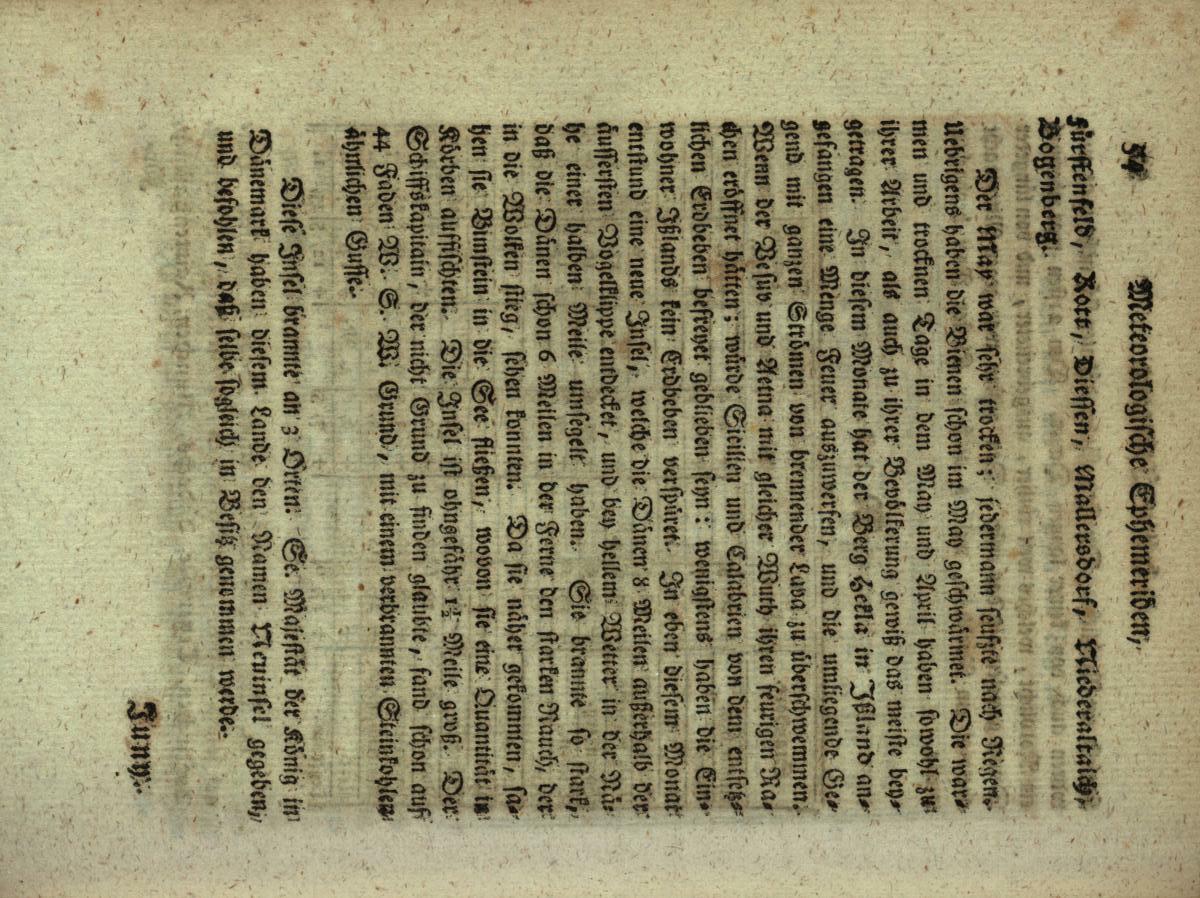 54 Meteorologische Ephemeriden,
Fürstenfeld, Rott, Diessen, Mallersdorf, Niederaltaich,
Bogenberg.
Der May war sehr trocken; jedermann seufzte nach Regen.
Uebrigens haben die Bienen schon im May geschwärmet. Die war-
men und trocknen Tage in dem May und April haben sowohl zu
ihrer Arbeit, als auch zu ihrer Bevölkerung gewiß das meiste bey-
getragen. In diesem Monate hat der Berg Hekla in Ißland an-
gefangen eine Menge Feuer auszuwerfen, und die umliegende Ge-
gend mit ganzen Strömen von brennender Lava zu überschwemmen.
Wenn der Vesuv und Aetna mit gleicher Wuth ihren feurigen Ra-
chen eröffnet hätten; würde Sicilien und Calabrien von dem entsetz-
lichen Erdbeben befreyet geblieben seyn: wenigstens haben die Ein-
wohner Ißlands kein Erdbeben verspüret. In eben diesem Monat
entstund eine neue Insel, welche die Dänen 8 Meilen außerhalb der
äussersten Vogelklippe entdecket, und bey hellem Wetter in der Nä-
he einer halben Meile umsegelt haben. Sie brannte so stark,
daß die Dänen schon 6 Meilen in der Ferne den starken Rauch, der
in die Wolken stieg, sehen konnten. Da sie näher gekommen, sa-
hen sie Bimstein in die See fließen, wovon sie eine Quantität in
Körben auffischten. Die Insel ist ohngefähr 1½ Meile groß. Der
Schiffskapitain, der nicht Grund zu finden glaubte, fand schon auf
44 Faden W. S. W. Grund, mit einem verbrannten Steinkohlen
ähnlichen Gusse.
Diese Insel brannte an 3 Orten. Se. Majestät der König in
Dänemark haben diesem Lande den Namen Neuinsel gegeben,
und befohlen, daß selbe sogleich in Besitz genommen werde.
Juny.